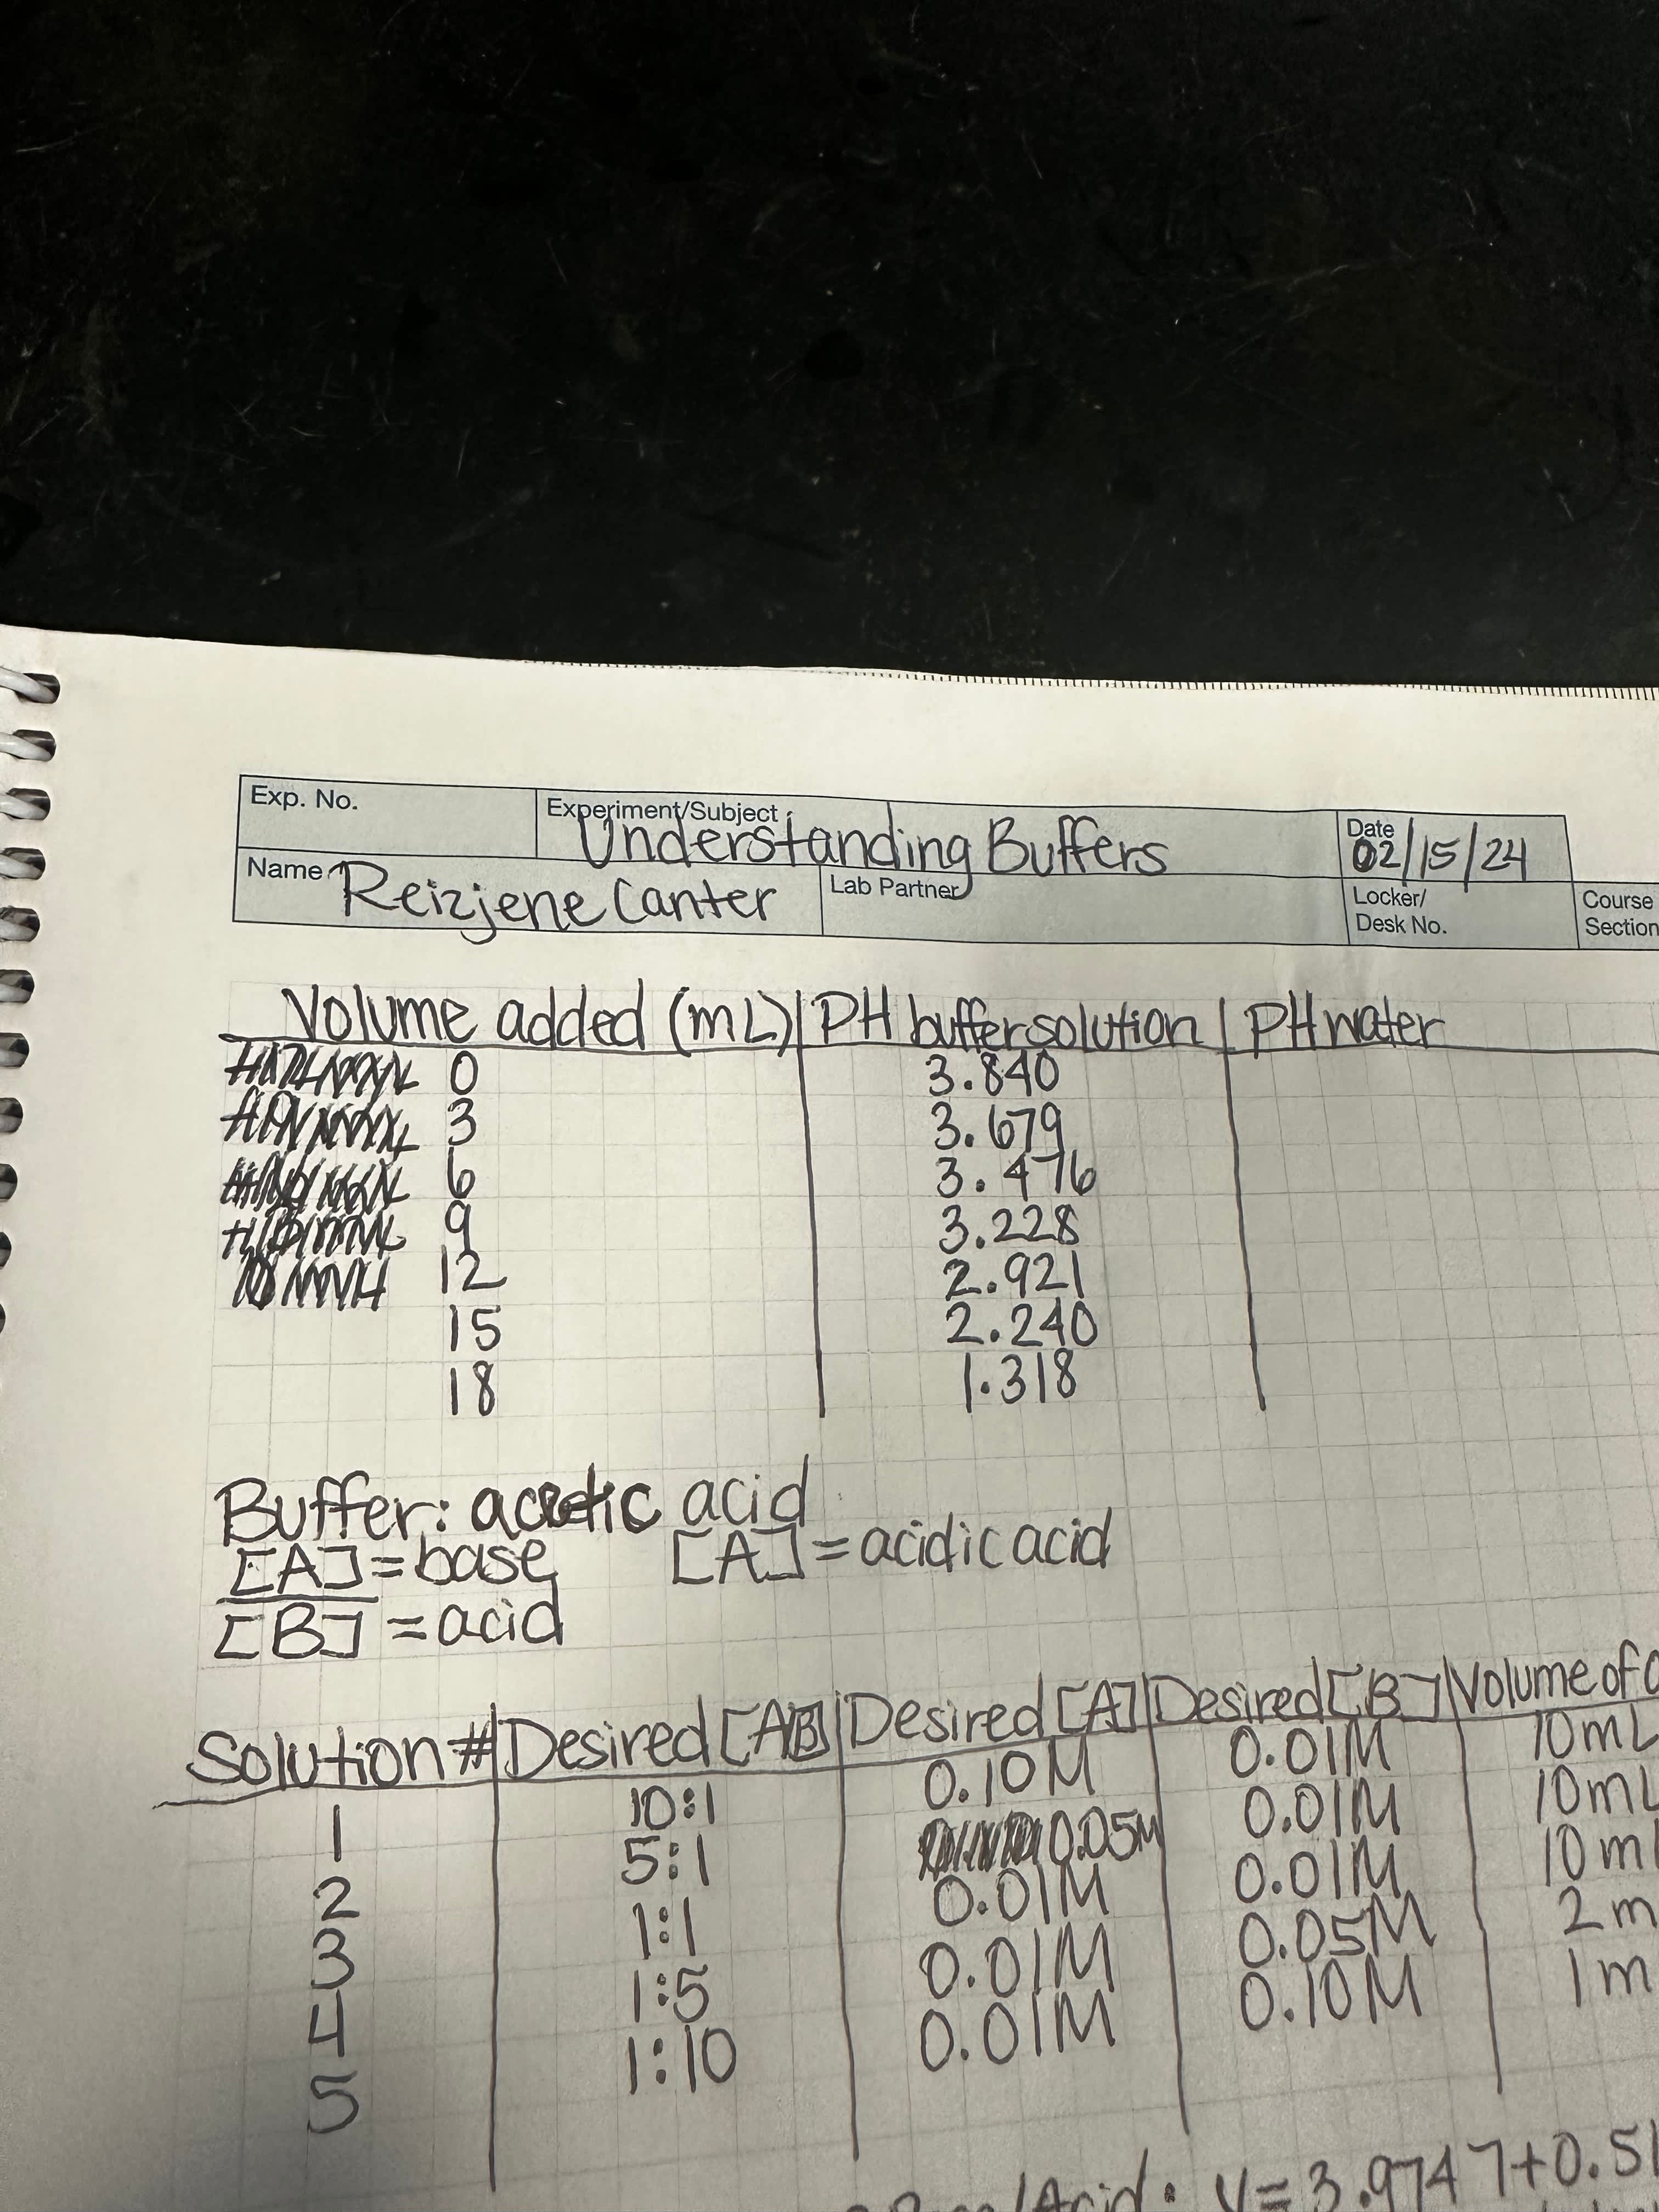 Exp. No.
Experiment/Subject
Understanding Buffers
Date
02/15/24
Name
Reizjene Canter
Lab Partner
Locker/
Desk No.
Course
Section
Volume added (mL) | PH buffer solution | PH water
0 3.840
3 3.679
6 3.476
9 3.228
12 2.921
15 2.240
18 1.318
Buffer: acetic acid
[A] = base [A] = acidic acid
[B] = acid
Solution # | Desired [A/B] | Desired [A] | Desired [B] | Volume of
1 10:1 0.10M 0.01M 10mL
2 5:1 0.05M 0.01M 10mL
3 1:1 0.01M 0.01M 10ml
4 1:5 0.01M 0.05M 2m
5 1:10 0.01M 0.10M 1m
/Acid: y = 3.9747+0.51